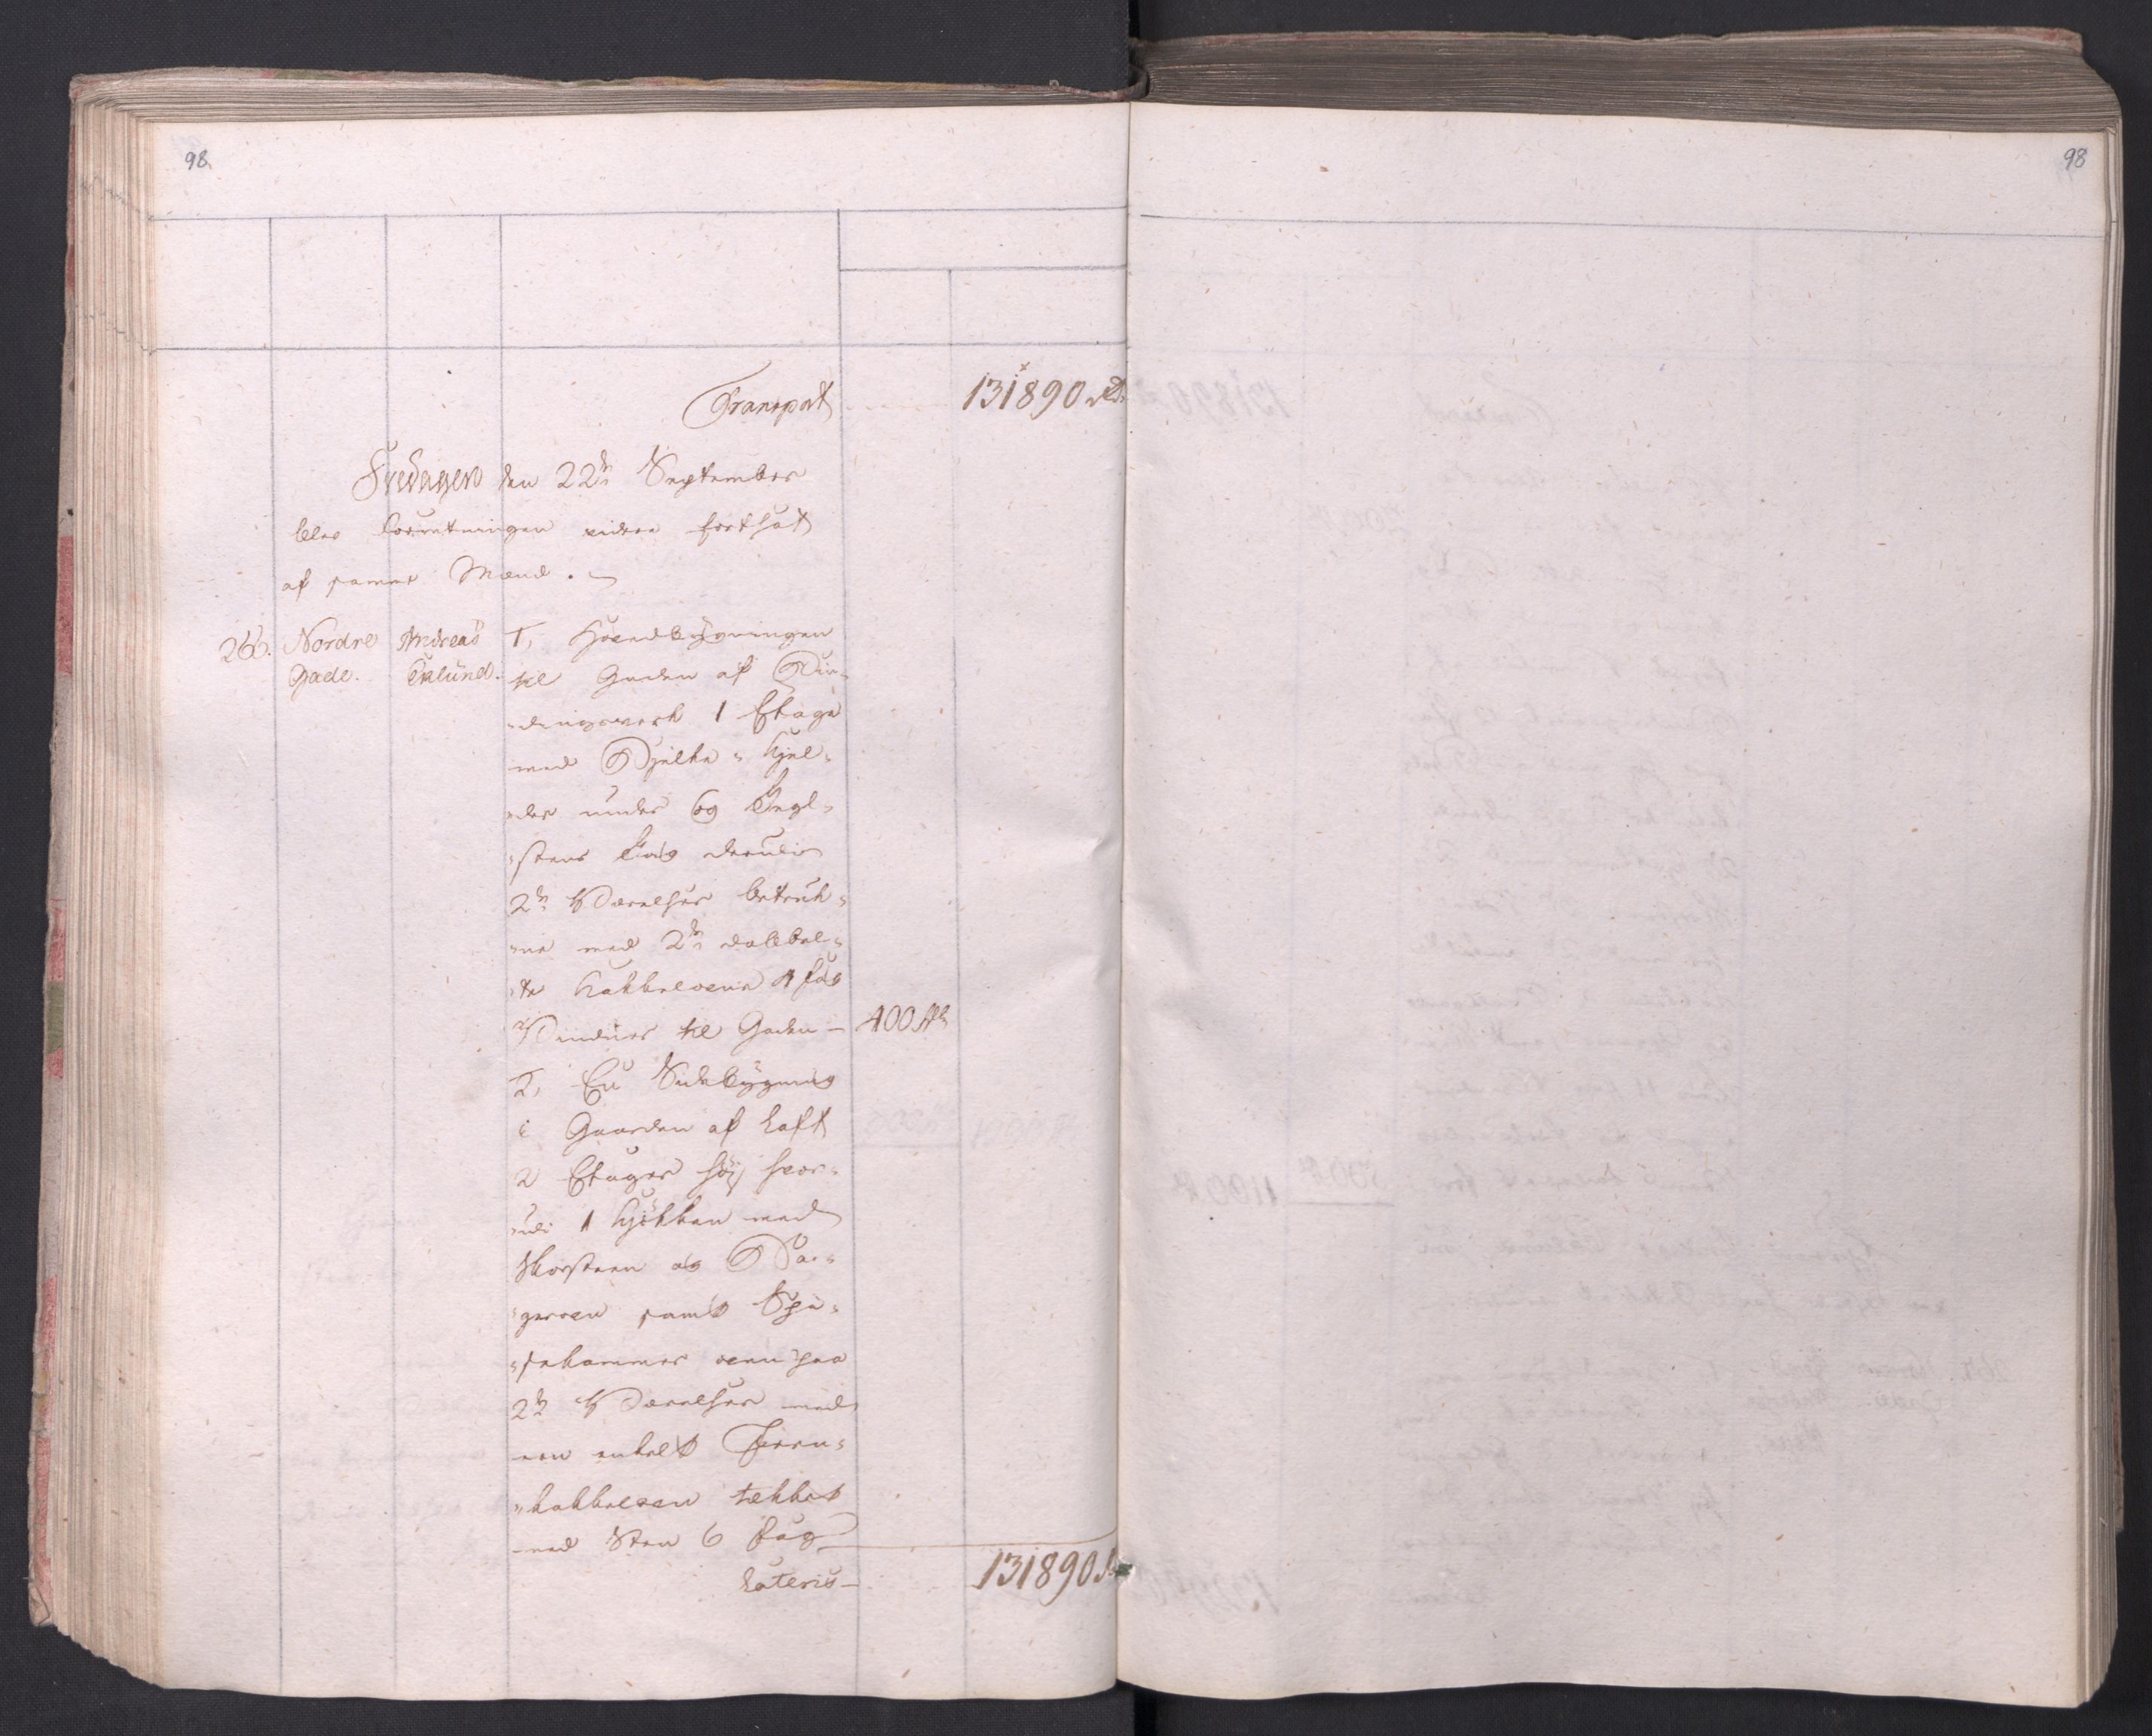 98.
98
Transport 131890 Rd.
Fredagen den 22de September
blev Forretningen videre fortsat
af samme Mænd.
266. Nordre Gade. Andreas Eklund.
1, Hovedbÿgningen
til Gaden af Bin-
dingsverk 1 Etage
med Bjelke-Kjel-
der under og Tegl-
steens Tag deruti
2de Værelser betruk-
ne med 2de dobbel-
te Kakkelovne 9 fag
Vinduer til Gaden — 400 Rd
2, En Sidebÿgning
i Gaarden af Laft
2 Etager høÿ hvor-
udi 1 Kjökken med
Skorsteen og Ba-
gerovn samt Spi-
sekammer ovenpaa
2de Værelser med
een enkelt Jern-
kakkelovn tekket
med Steen 6 fag
Lateris — 131890 Rd